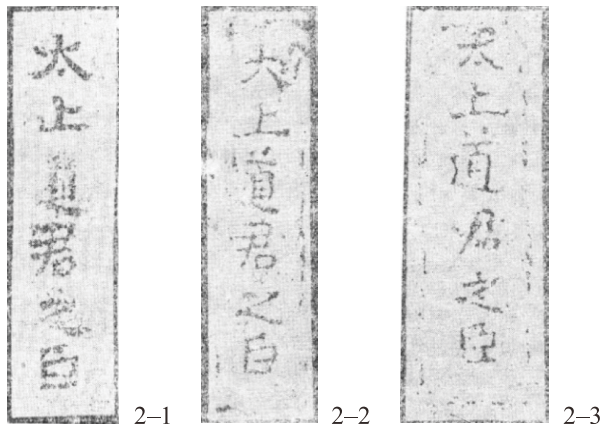 太上道君之臣
2–1
太上道君之臣
2–2
太上道君之臣
2–3